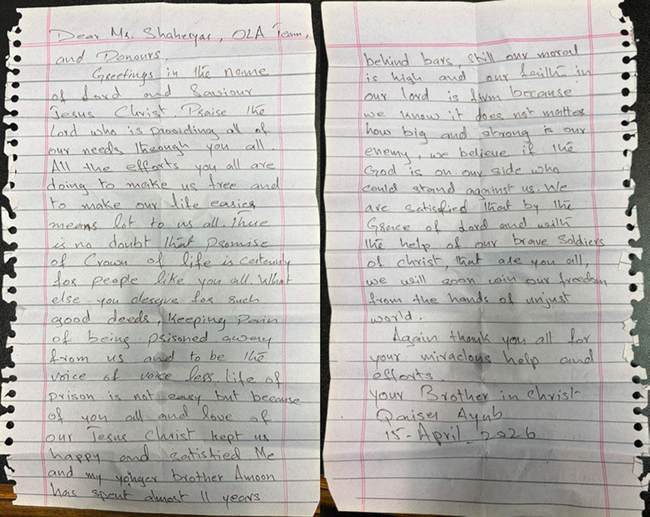 Dear Mr. Shaheryar, OLA Team,
and Donours,
Greetings in the name
of Lord and Saviour
Jesus Christ. Praise the
Lord who is providing all of
our needs through you all.
All the efforts you all are
doing to make us free and
to make our life easier
means lot to us all. There
is no doubt that promise
of Crown of life is certainly
for people like you all. What
else you deserve for such
good deeds, Keeping pain
of being prisoned away
from us and to be the
voice of voice less. life of
prison is not easy but because
of you all and love of
our Jesus Christ kept us
happy and satisfied Me
and my younger brother Amoon
has spent almost 11 years
behind bars, still our moral
is high and our faith in
our lord is firm because
we know it does not matter
how big and strong is our
enemy, we believe if the
God is on our side who
could stand against us. We
are satisfied that by the
Grace of Lord and with
the help of our brave Soldiers
of christ, that are you all,
we will soon win our freedom
from the hands of unjust
world.
Again thank you all for
your miraclous help and
efforts.
your Brother in Christ
Qaiser Ayub
15-April, 2026